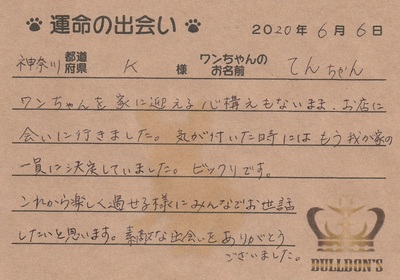 運命の出会い
2020年6月6日
神奈川 都道府県 K 様 ワンちゃんのお名前 てんちゃん
ワンちゃんを家に迎える心構えもないまま、お店に
会いに行きました。気が付いた時にはもう我が家の
一員に決定していました。ビックリです。
これから楽しく過せる様にみんなでお世話
したいと思います。素敵な出会いをありがとう
ございました。
BULLDON'S